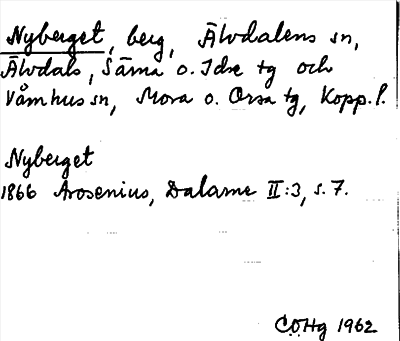 Nyberget, berg, Älvdalens sn,
Älvdals, Särna o. Idre tg och
Våmhus sn, Mora o. Orsa tg, Kopp. l.
Nyberget
1866 Arosenius, Dalarne II:3, s. 7.
CÖHg 1962